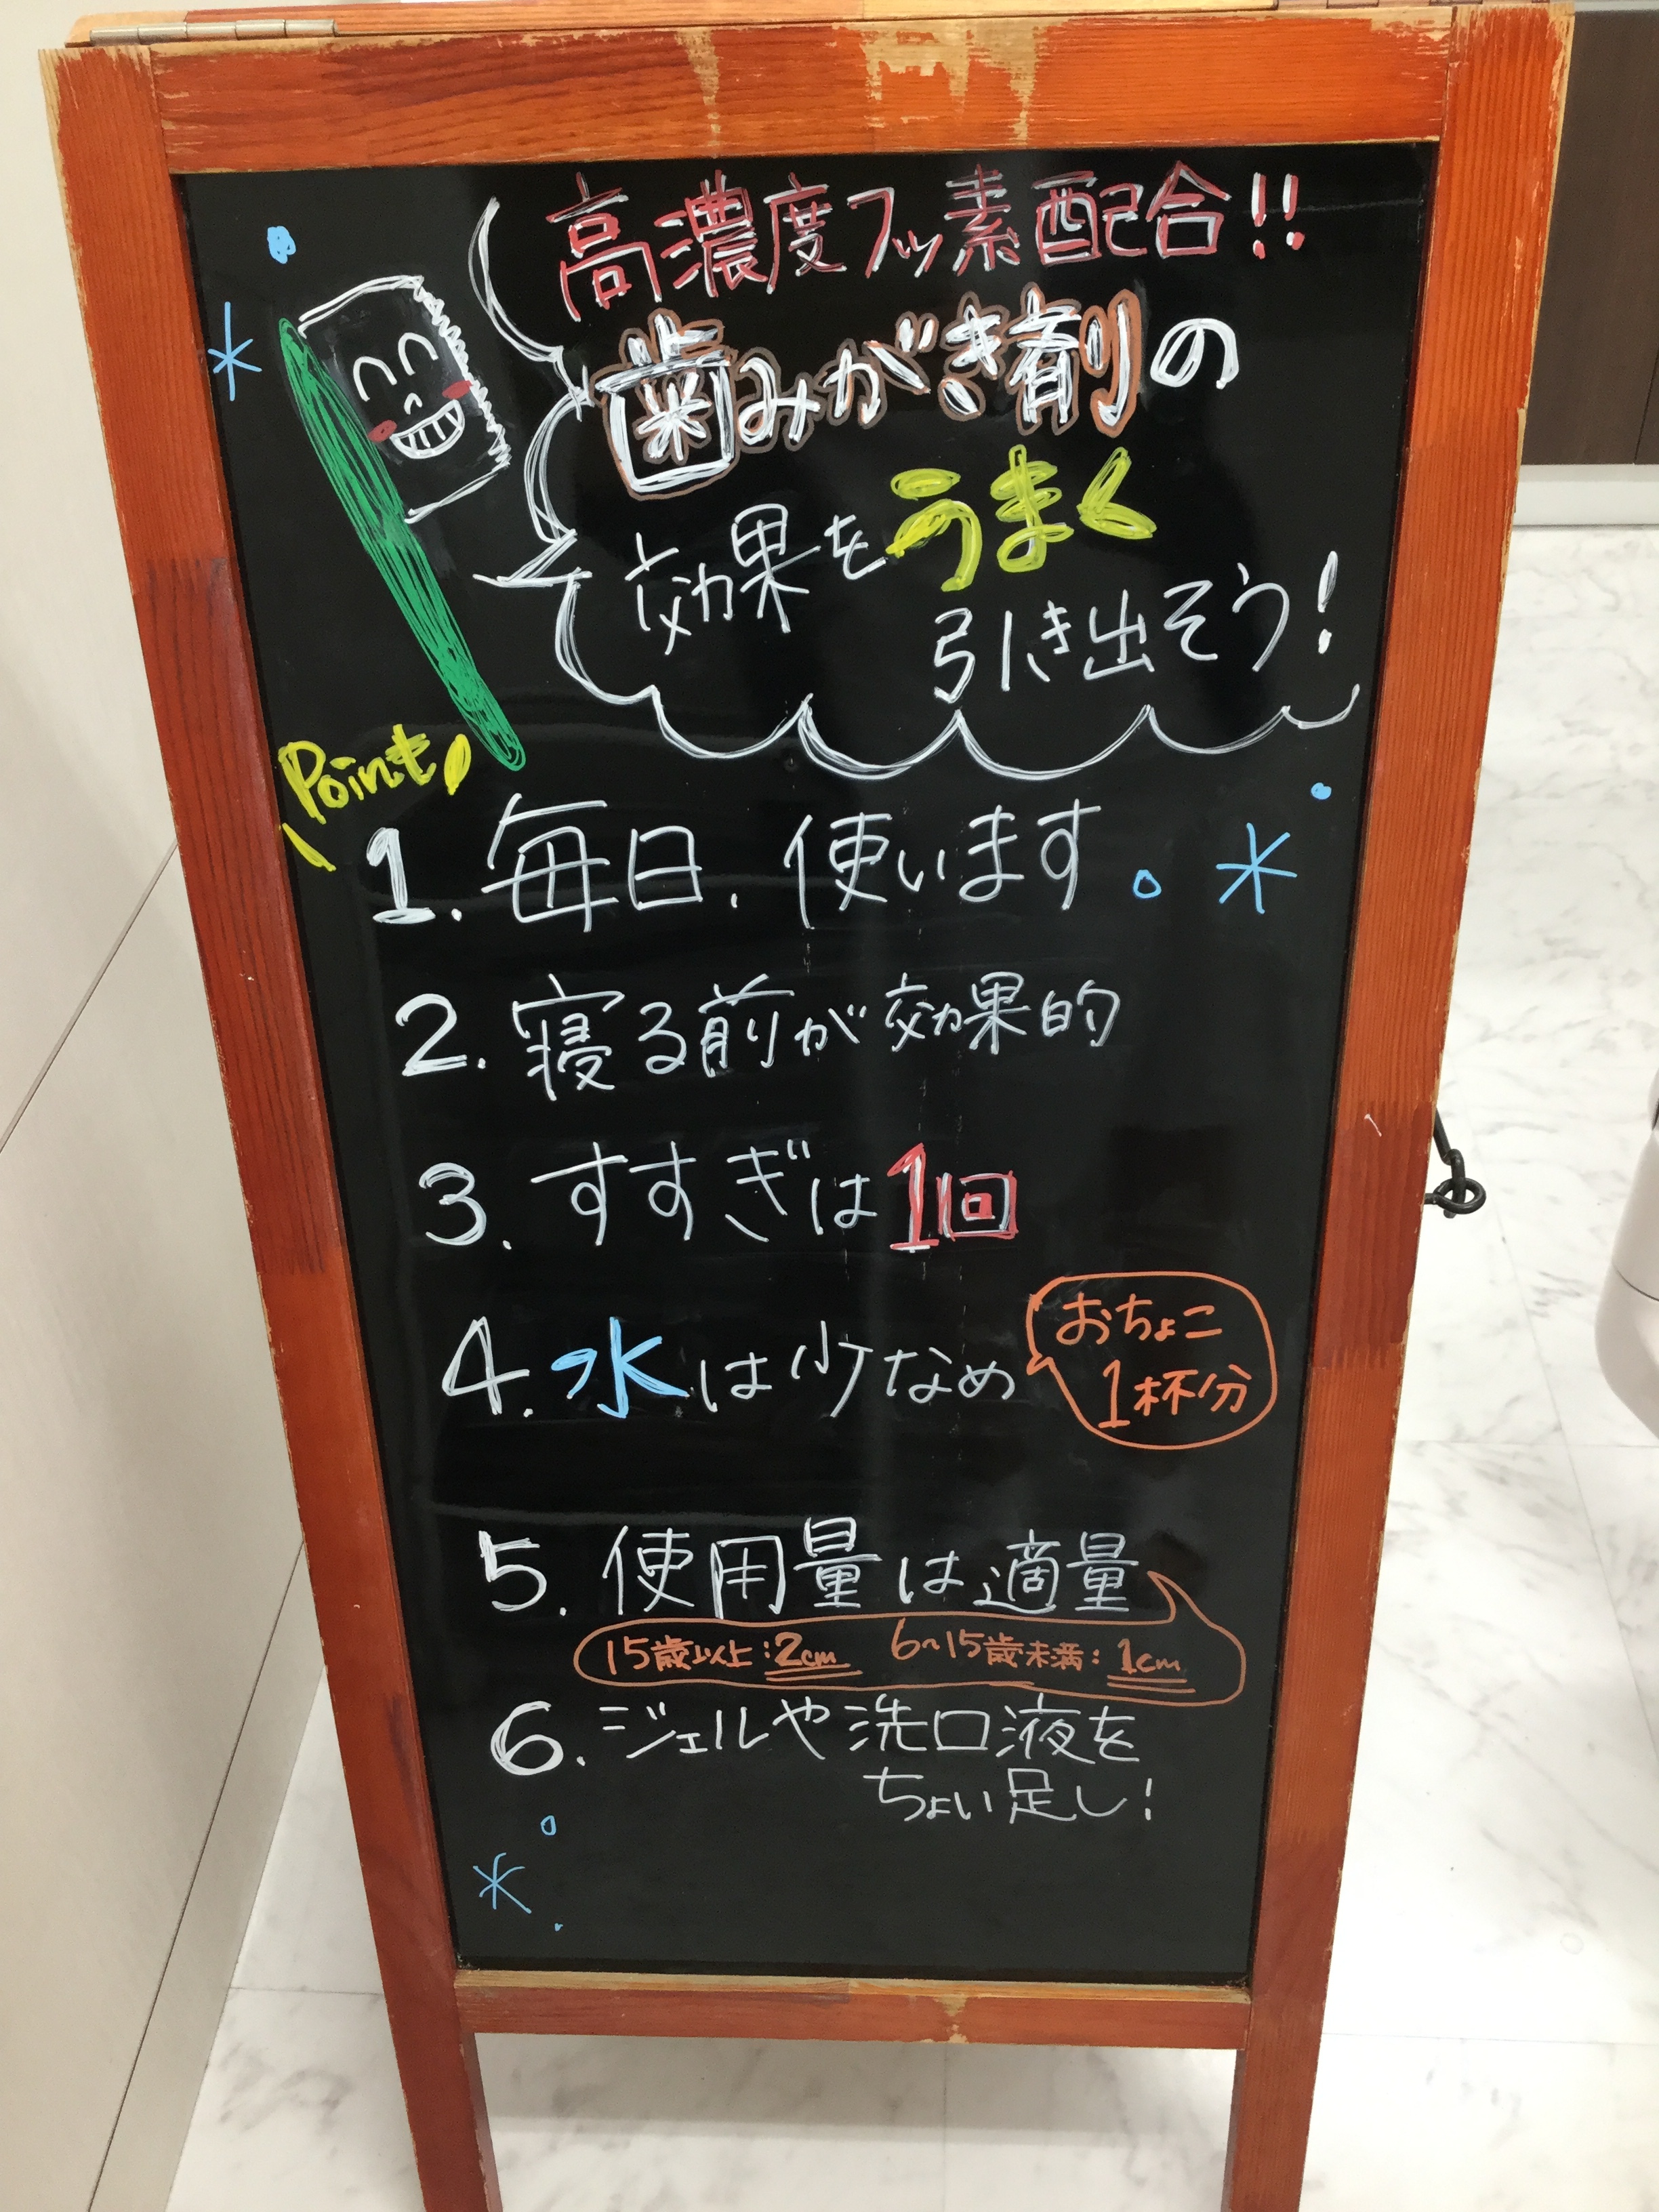 高濃度フッ素配合!!
歯みがき剤の
効果をうまく
引き出そう!
Point
1. 毎日、使います。
2. 寝る前が効果的
3. すすぎは1回
4. 水は少なめ
おちょこ
1杯分
5. 使用量は適量
15歳以上:2cm 6~15歳未満:1cm
6. ジェルや洗口液を
ちょい足し!